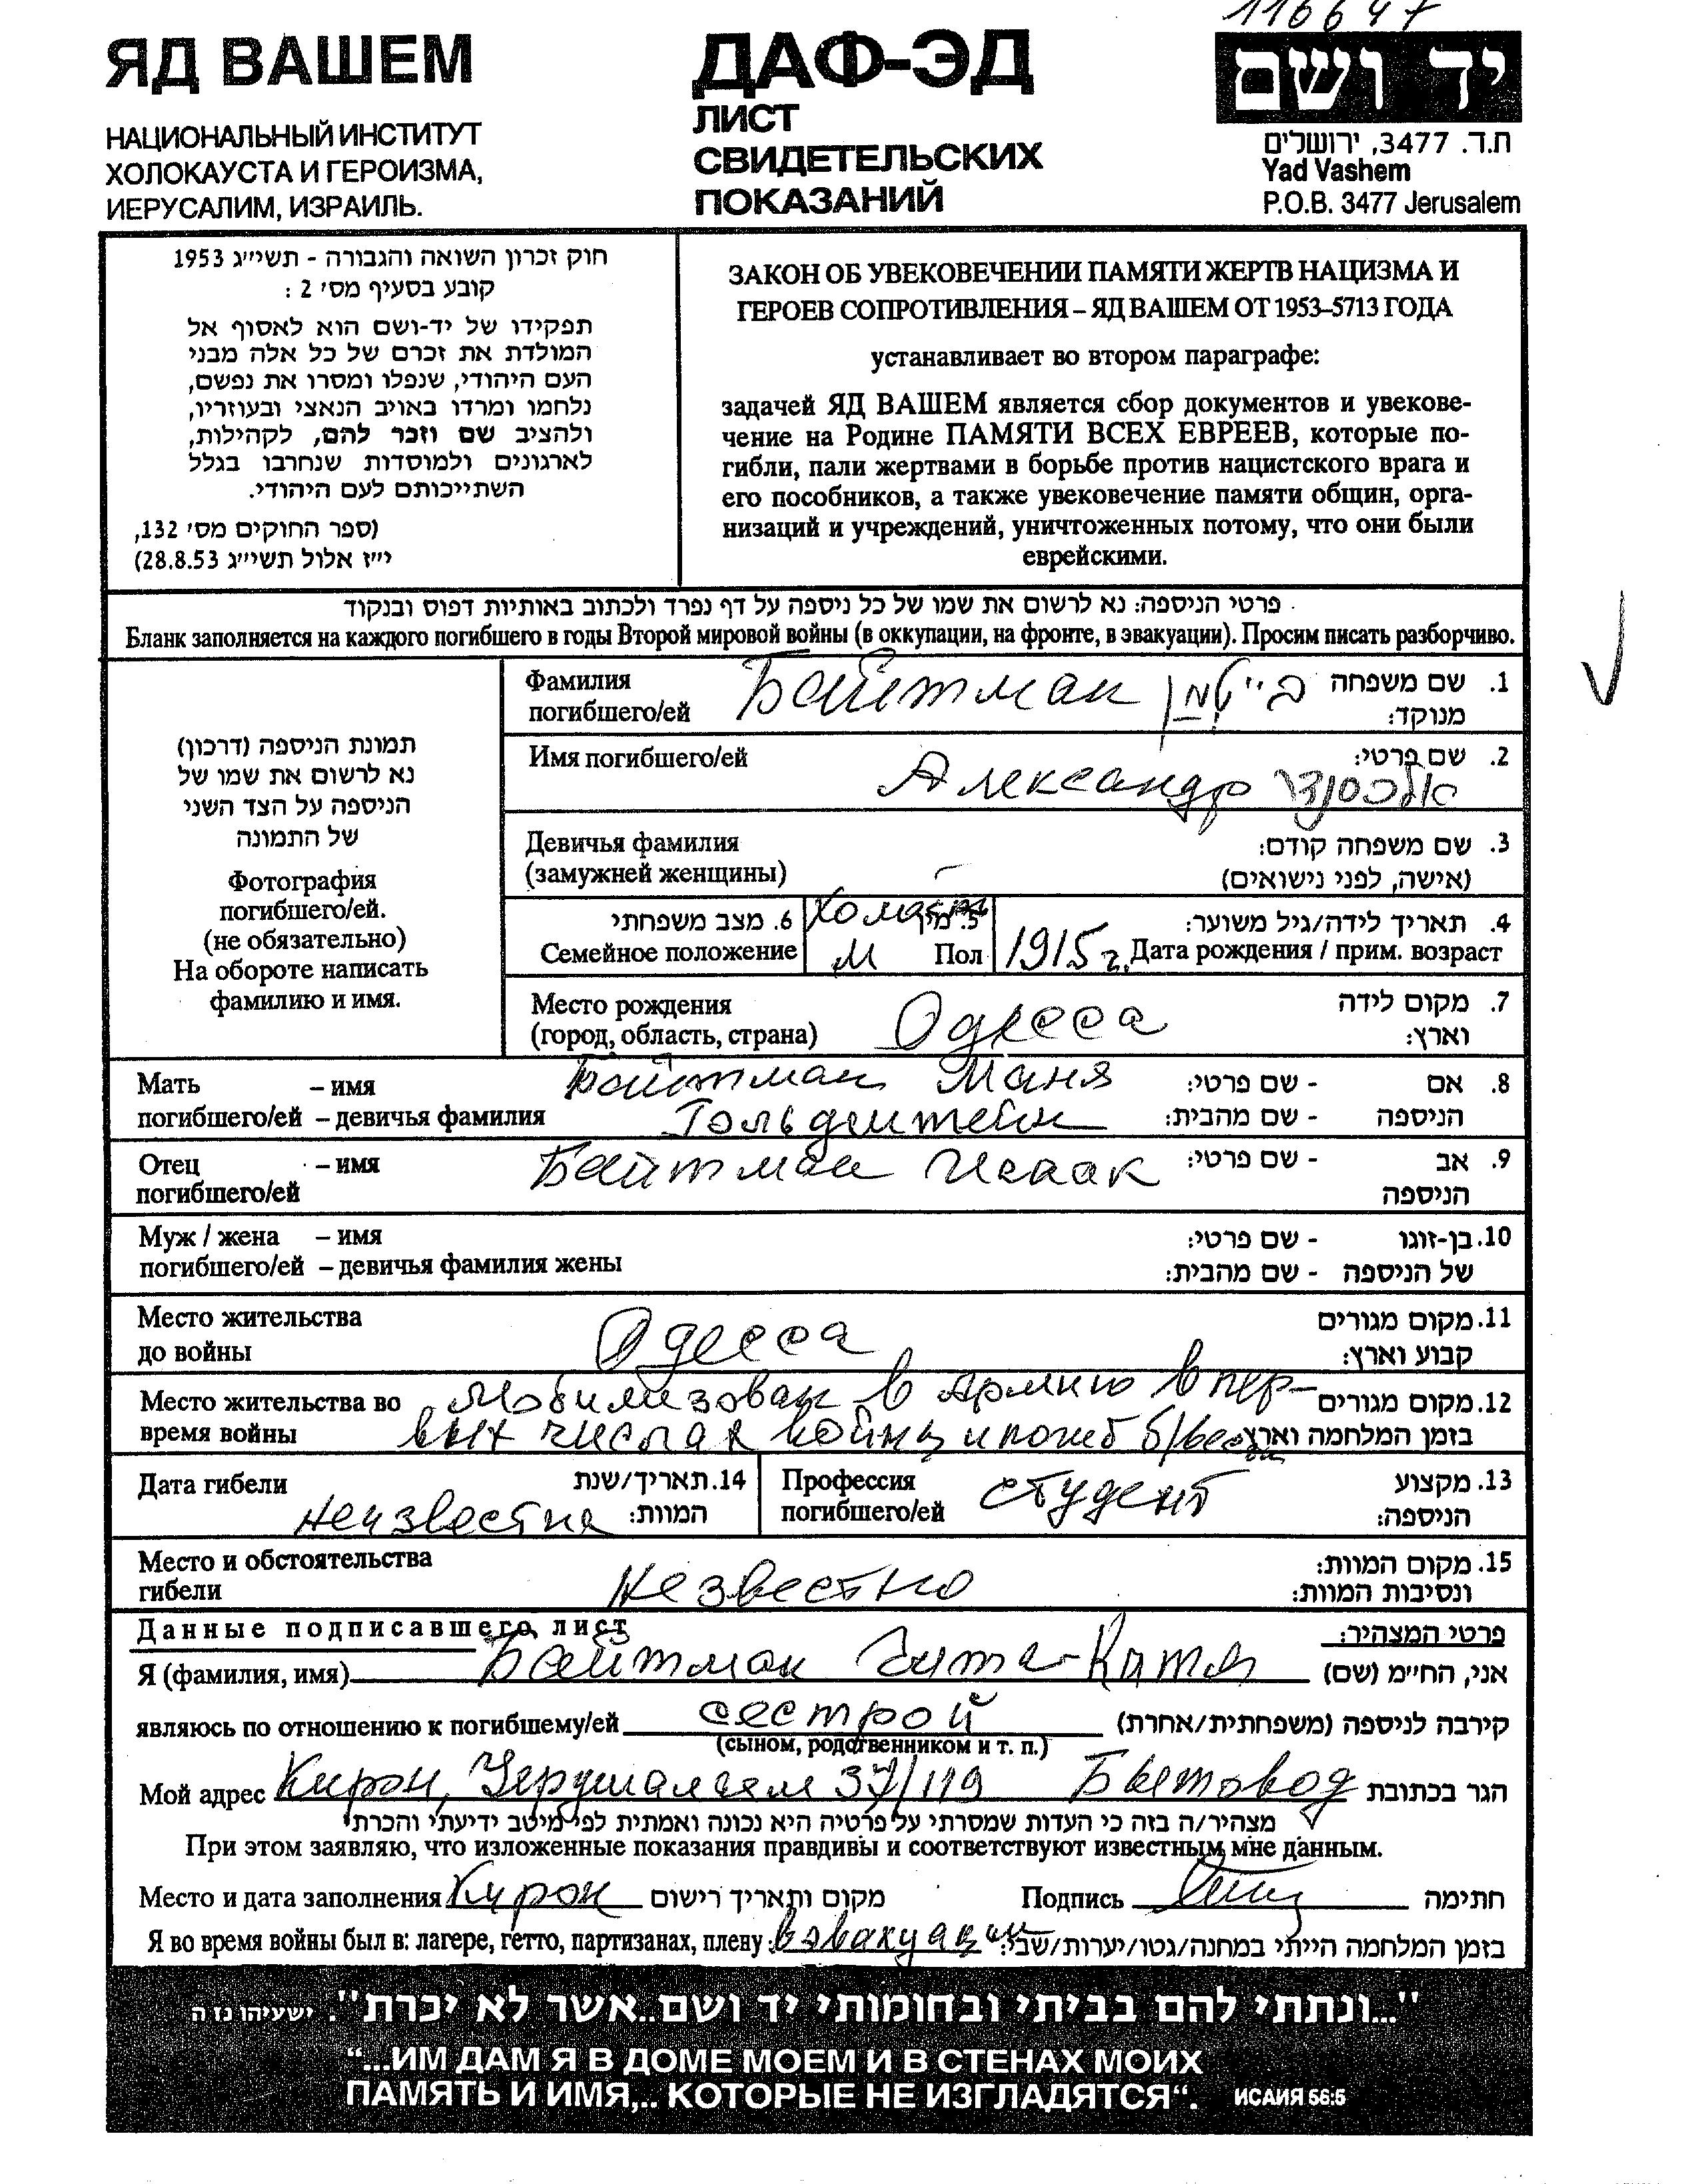 116647
ЯД ВАШЕМ
НАЦИОНАЛЬНЫЙ ИНСТИТУТ
ХОЛОКАУСТА И ГЕРОИЗМА,
ИЕРУСАЛИМ, ИЗРАИЛЬ.
ДАФ-ЭД
ЛИСТ
СВИДЕТЕЛЬСКИХ
ПОКАЗАНИЙ
יד ושם
ת.ד. 3477, ירושלים
Yad Vashem
P.O.B. 3477 Jerusalem
חוק זכרון השואה והגבורה - תשי״ג 1953
קובע בסעיף מס׳ 2 :
תפקידו של יד-ושם הוא לאסוף אל
המולדת את זכרם של כל אלה מבני
העם היהודי, שנפלו ומסרו את נפשם,
נלחמו ומרדו באויב הנאצי ובעוזריו,
ולהציב שם וזכר להם, לקהילות,
לארגונים ולמוסדות שנחרבו בגלל
השתייכותם לעם היהודי.
(ספר החוקים מס׳ 132,
י״ז אלול תשי״ג 28.8.53)
ЗАКОН ОБ УВЕКОВЕЧЕНИИ ПАМЯТИ ЖЕРТВ НАЦИЗМА И
ГЕРОЕВ СОПРОТИВЛЕНИЯ – ЯД ВАШЕМ ОТ 1953–5713 ГОДА
устанавливает во втором параграфе:
задачей ЯД ВАШЕМ является сбор документов и увекове-
чение на Родине ПАМЯТИ ВСЕХ ЕВРЕЕВ, которые по-
гибли, пали жертвами в борьбе против нацистского врага и
его пособников, а также увековечение памяти общин, орга-
низаций и учреждений, уничтоженных потому, что они были
еврейскими.
פרטי הניספה: נא לרשום את שמו של כל ניספה על דף נפרד ולכתוב באותיות דפוס ובנקוד
Бланк заполняется на каждого погибшего в годы Второй мировой войны (в оккупации, на фронте, в эвакуации). Просим писать разборчиво.
תמונת הניספה (דרכון)
נא לרשום את שמו של
הניספה על הצד השני
של התמונה
Фотография
погибшего/ей.
(не обязательно)
На обороте написать
фамилию и имя.
Фамилия Байтман בייטמן 1. שם משפחה
погибшего/ей מנוקד:
Имя погибшего/ей Александр אלכסנדר 2. שם פרטי:
Девичья фамилия 3. שם משפחה קודם:
(замужней женщины) (אישה, לפני נישואים)
6. מצב משפחתי Холост 5. מין 4. תאריך לידה/גיל משוער:
Семейное положение М Пол 1915 г. Дата рождения / прим. возраст
Место рождения Одесса 7. מקום לידה
(город, область, страна) וארץ:
Мать – имя Байтман Маня 8. אם - שם פרטי:
погибшего/ей – девичья фамилия Гольдштейн הניספה - שם מהבית:
Отец – имя Байтман Исаак 9. אב - שם פרטי:
погибшего/ей הניספה
Муж / жена – имя 10. בן-זוגו - שם פרטי:
погибшего/ей – девичья фамилия жены של הניספה - שם מהבית:
Место жительства Одесса 11. מקום מגורים
до войны קבוע וארץ:
Место жительства во Мобилизован в армию в пер- 12. מקום מגורים
время войны вых числах войны и погиб б/вести בזמן המלחמה וארץ:
Дата гибели 14. תאריך/שנת Профессия студент 13. מקצוע
неизвестна המוות: погибшего/ей הניספה:
Место и обстоятельства 15. מקום המוות:
гибели незвестно ונסיבות המוות:
Данные подписавшего лист פרטי המצהיר:
Я (фамилия, имя) Байтман Гита-Китя אני, החיימ (שם)
являюсь по отношению к погибшему/ей сестрой קירבה לניספה (משפחתית/אחרת)
(сыном, родственником и т. п.)
Мой адрес Кирон, Иерушалаем 37/119 הגר בכתובת
מצהיר/ה בזה כי העדות שמסרתי על פרטיה היא נכונה ואמתית לפי מיטב ידיעתי והכרתי
При этом заявляю, что изложенные показания правдивы и соответствуют известным мне данным.
Место и дата заполнения Кирон מקום ותאריך רישום Подпись חתימה
Я во время войны был в: лагере, гетто, партизанах, плену: в эвакуации בזמן המלחמה הייתי במחנה/גטו/יערות/שבי:
"...ונתתי להם בביתי ובחומותי יד ושם..אשר לא יכרת". ישעיהו נז ה
“...ИМ ДАМ Я В ДОМЕ МОЕМ И В СТЕНАХ МОИХ
ПАМЯТЬ И ИМЯ,.. КОТОРЫЕ НЕ ИЗГЛАДЯТСЯ“. ИСАИЯ 56:5